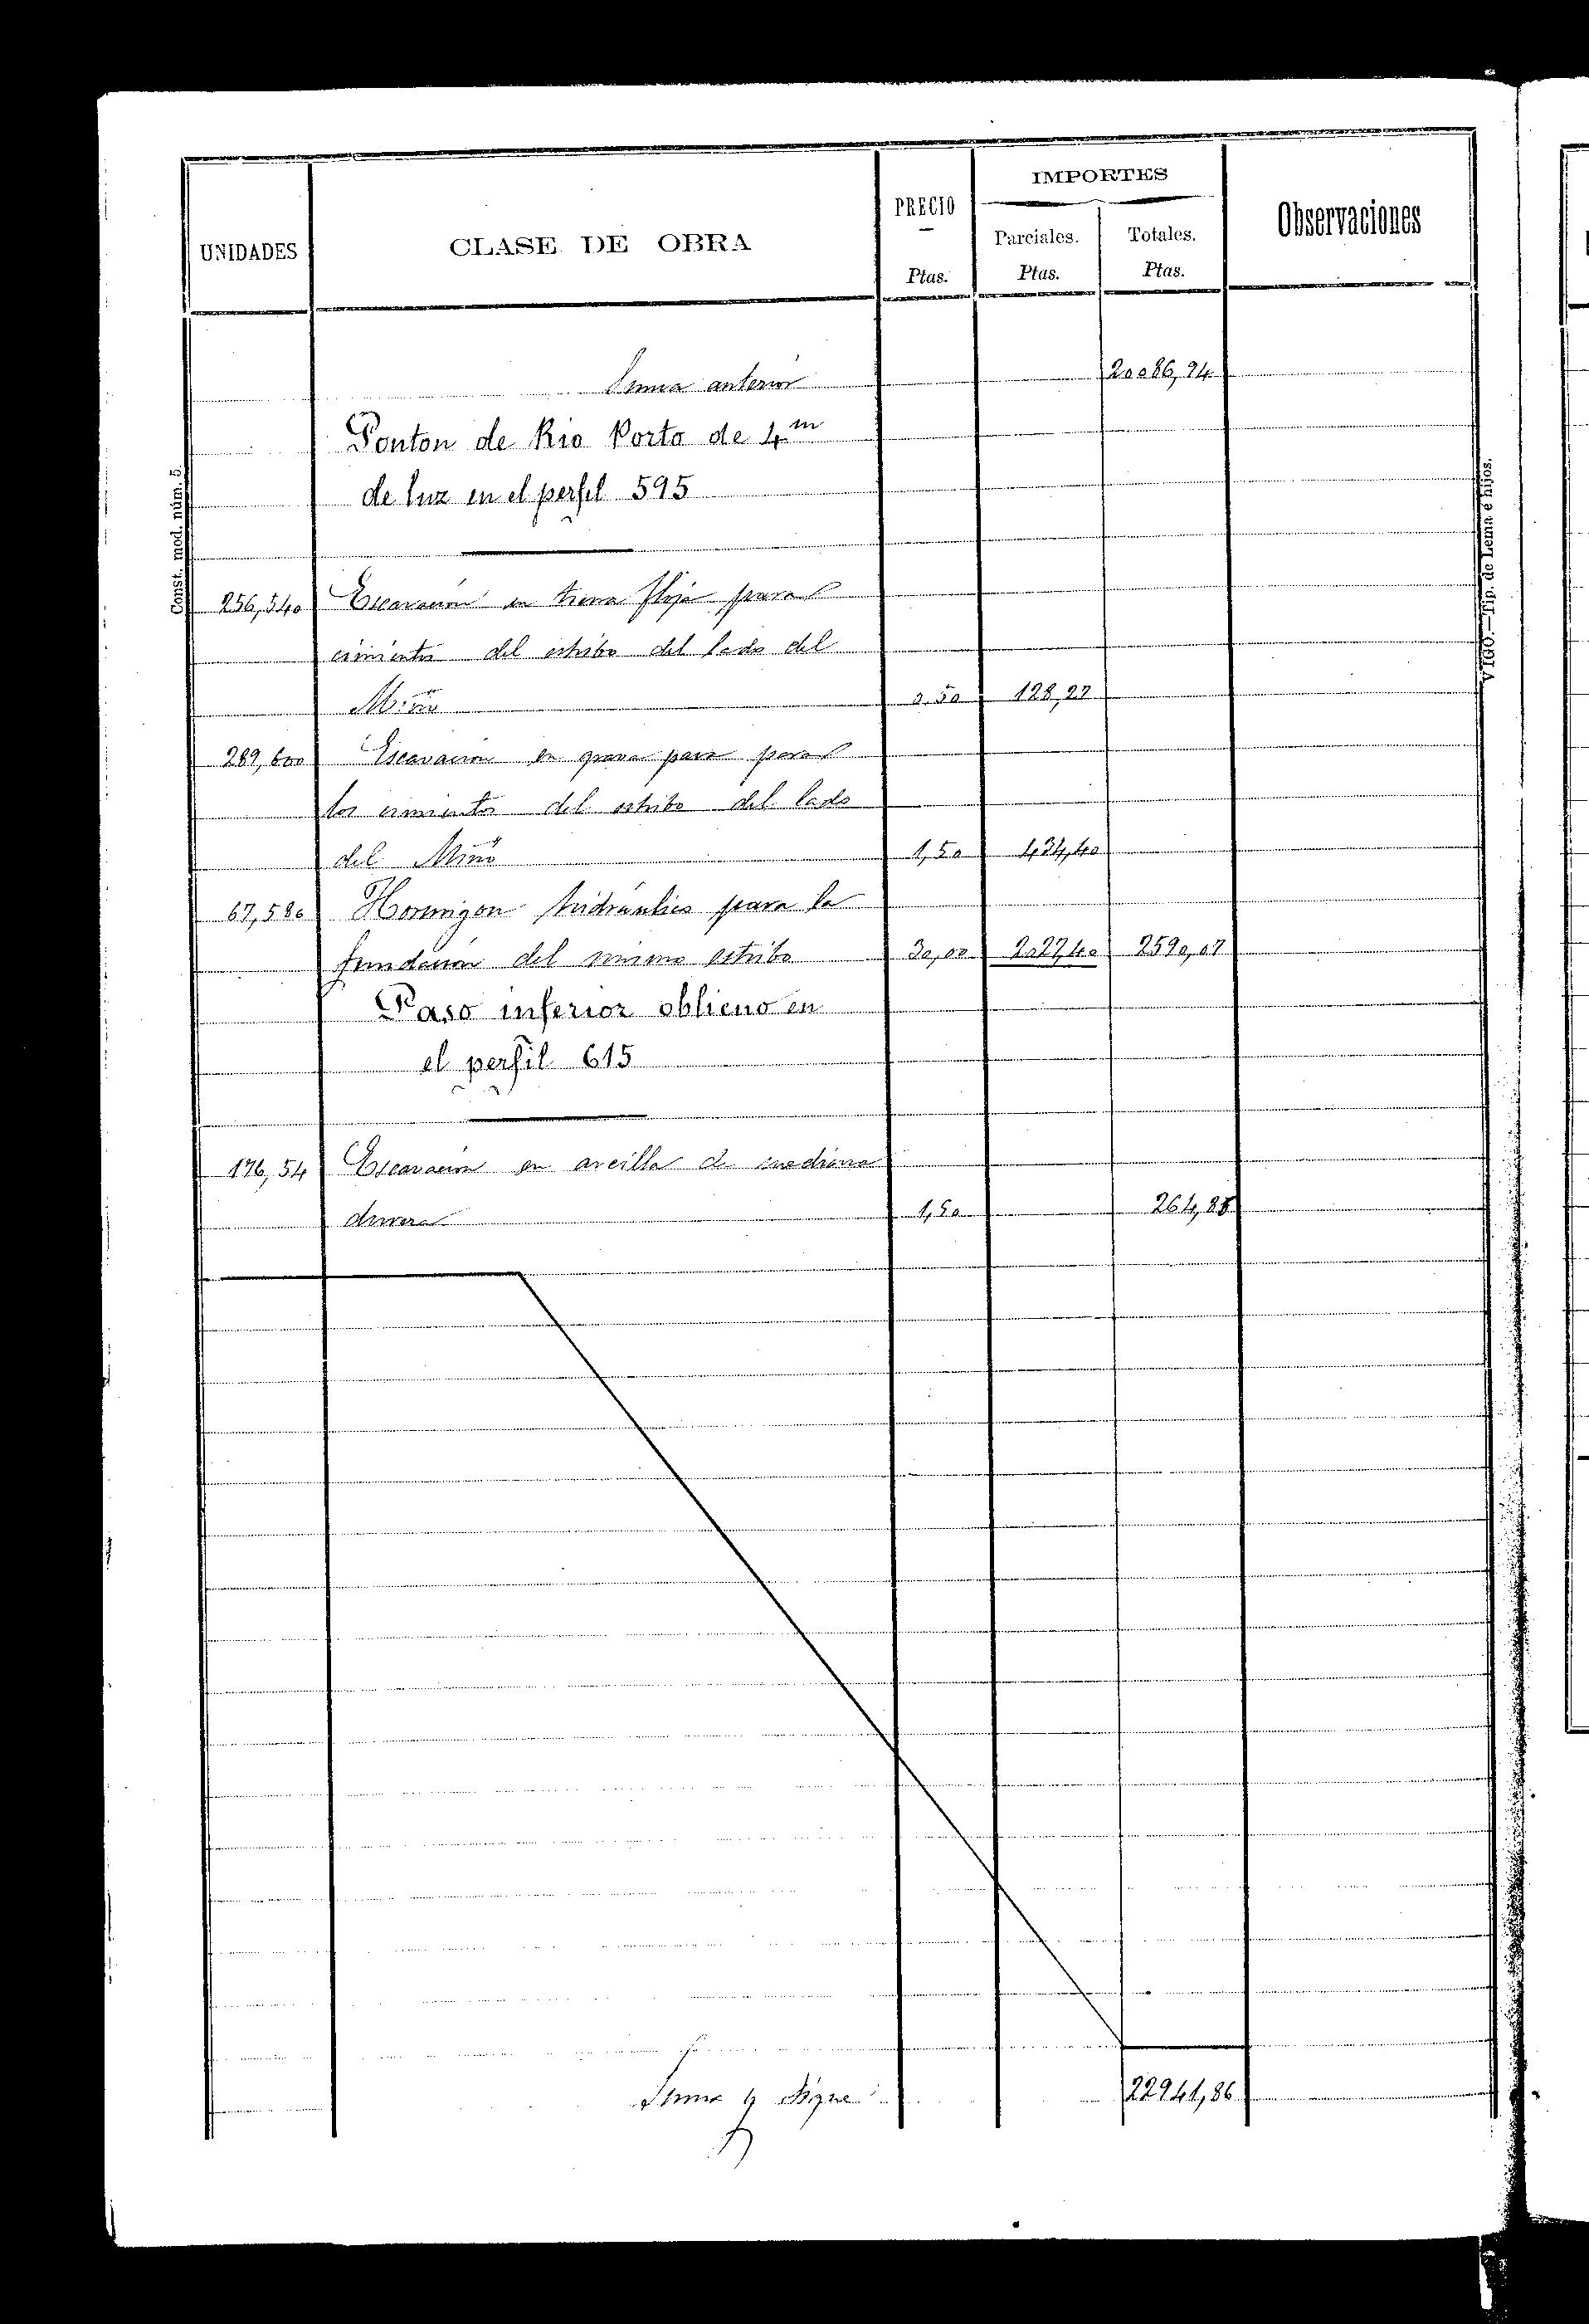 IMPORTES
UNIDADES
CLASE DE OBRA
PRECIO
Ptas.
Parciales.
Ptas.
Totales.
Ptas.
Observaciones
Suma anterior 20086,94
Ponton de Rio Porto de 4m
de luz en el perfil 595
256,540 Escavación en tierra floja para
cimientos del estribo del lado del
Miño 0,50 128,27
289,600 Escavación en grava para para
los cimientos del estribo del lado
del Miño 1,50 434,40
67,580 Hormigon hidráulico para la
fundación del mismo estribo 30,00 2027,40 2590,07
Paso inferior oblicuo en
el perfil 615
176,54 Escavación en arcilla de mediana
dureza 1,50 264,85
Suma y sigue 22941,86
Const. mod. núm. 5.
VIGO.—Tip. de Lema é hijos.